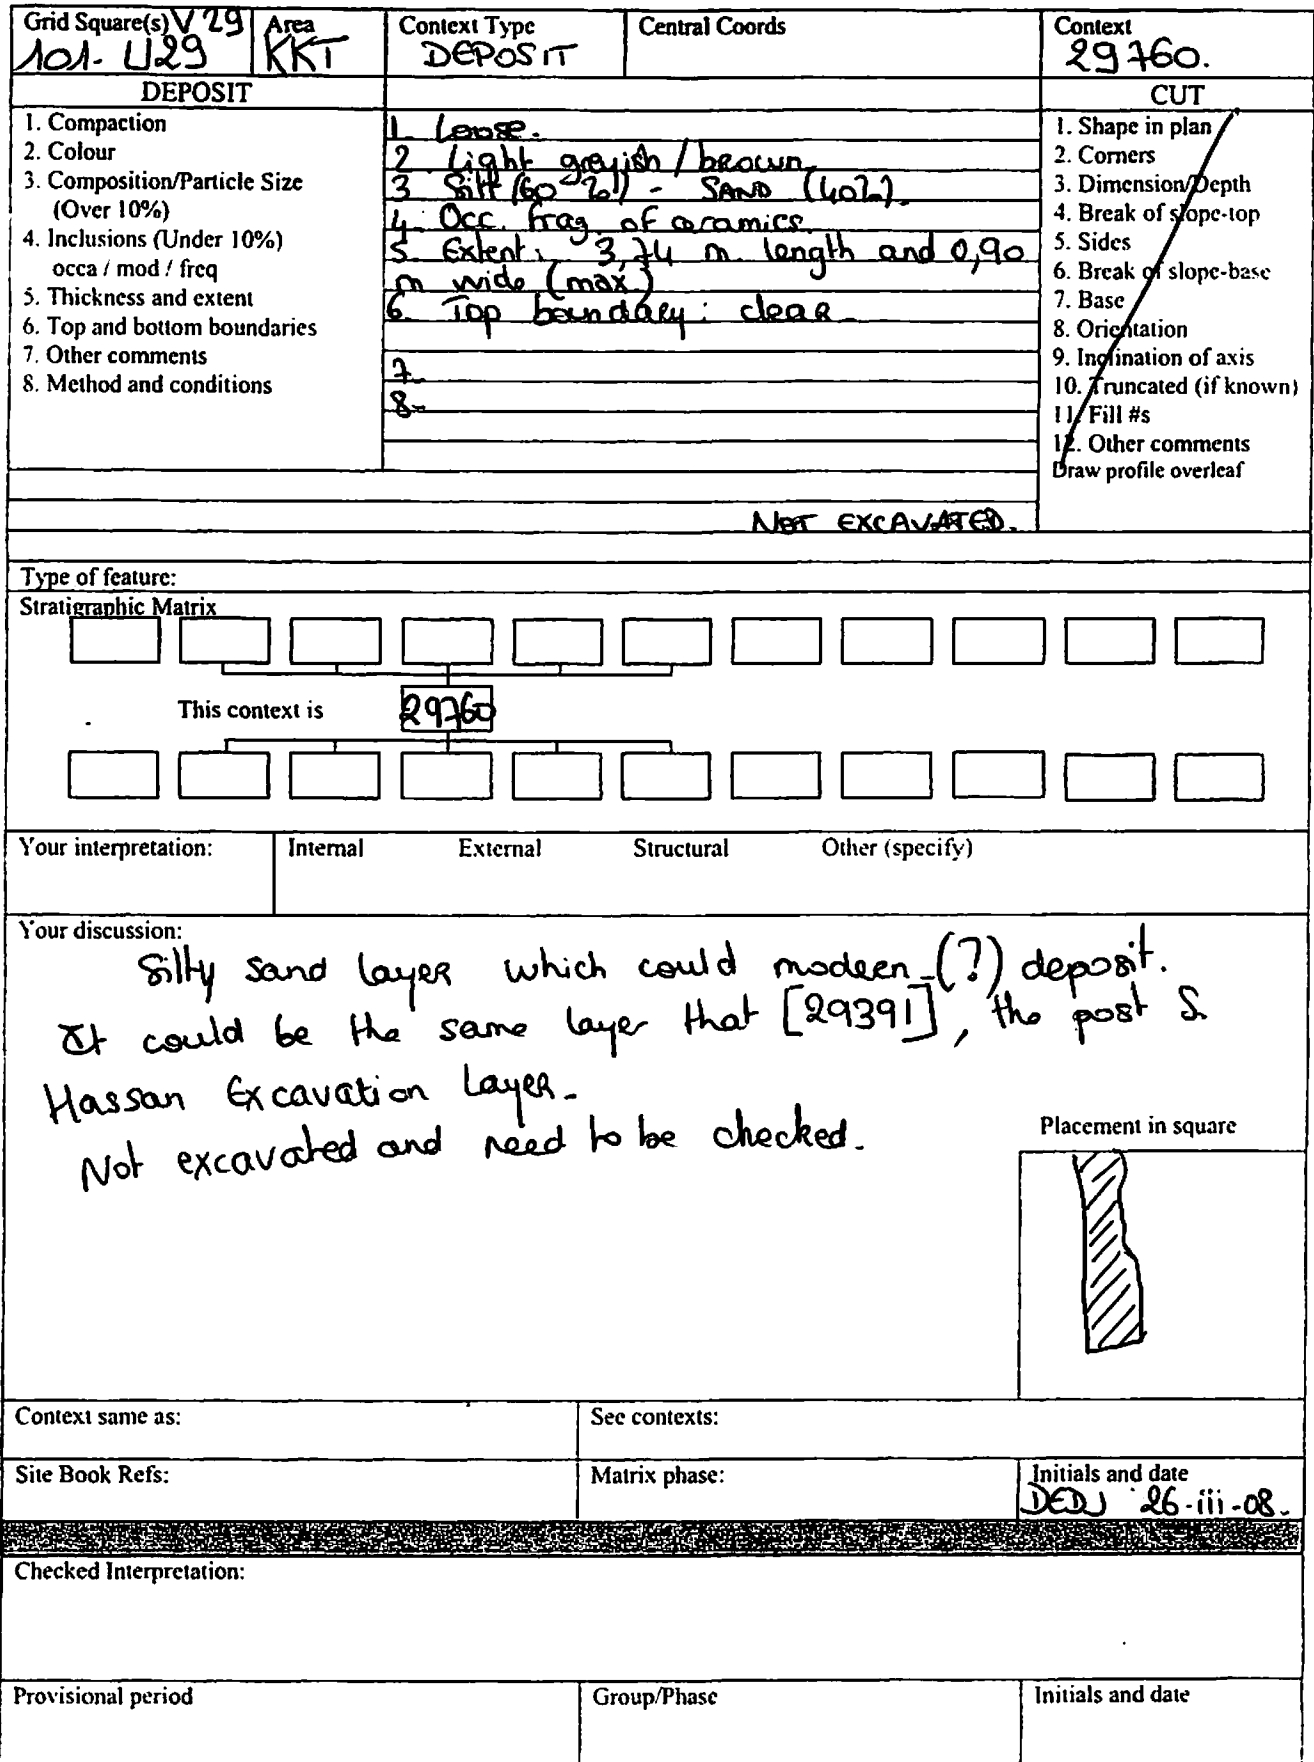 Grid Square(s) V29
101. U29
Area
KKT
Context Type
DEPOSIT
Central Coords
Context
29760.
DEPOSIT
CUT
1. Compaction
2. Colour
3. Composition/Particle Size
(Over 10%)
4. Inclusions (Under 10%)
occa / mod / freq
5. Thickness and extent
6. Top and bottom boundaries
7. Other comments
8. Method and conditions
1. Loose.
2 Light greyish / brown
3 Silt (60 %) - SAND (40%).
4. Occ. frag. of ceramics.
5. Extent: 3,74 m. length and 0,90
m wide (max.)
6. Top boundary: clear
7-
8-
1. Shape in plan
2. Corners
3. Dimension/Depth
4. Break of slope-top
5. Sides
6. Break of slope-base
7. Base
8. Orientation
9. Inclination of axis
10. Truncated (if known)
11. Fill #s
12. Other comments
Draw profile overleaf
NOT EXCAVATED.
Type of feature:
Stratigraphic Matrix
This context is
29760
Your interpretation:
Internal External Structural Other (specify)
Your discussion:
Silty sand layer which could modern (?) deposit.
It could be the same layer that [29391], the post S.
Hassan Excavation Layer.
Not excavated and need to be checked.
Placement in square
Context same as:
See contexts:
Site Book Refs:
Matrix phase:
Initials and date
DEDJ 26-iii-08.
Checked Interpretation:
Provisional period
Group/Phase
Initials and date